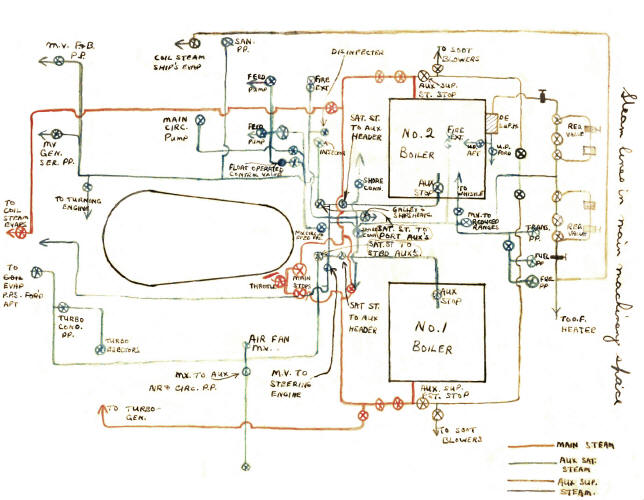 M.V. F&B.
P.P.
COIL STEAM
SHIP'S EVAP
SAN.
PP.
DISINFECTER
TO SOOT
BLOWERS
FEED
Pump
FIRE
EXT
AUX SUP.
ST. STOP
MAIN
CIRC.
PUMP
FEED
PUMP
SAT. ST.
TO AUX
HEADER
NO. 2
BOILER
FIRE
EXT
DE
SUP
RED.
VALVE
MV
GEN.
SER. PP.
FLOAT OPERATED
CONTROL VALVE
SHORE
CONN.
AUX
STOP
TO
WHISTLE
AFT
FORD
TO TURNING
ENGINE
GALLEY &
SHIPS HEATG
MX. TO
REDUCED
RANGES
RED.
VALVE
TO
COIL STEAM
EVAPS
SAT. ST. TO
PORT AUX'S
SAT. ST TO
STBD AUX'S
TRANS.
PP.
FUEL PP
FUEL PP
TO
COIL
EVAP
P.PS. FOR'D
AFT
MAIN
STOPS
THROTTLE
SAT ST.
TO AUX
HEADER
AUX
STOP
TO O.F.
HEATER
TURBO
COND.
PP.
TURBO
EJECTORS
AIR FAN
M.V.
NO. 1
BOILER
MX. TO AUX
AIR & CIRC. P.P.
M.V. TO
STEERING
ENGINE
AUX. SUP.
ST. STOP
TO TURBO-
GEN.
TO SOOT
BLOWERS
MAIN STEAM
AUX SAT.
STEAM
AUX SUP.
STEAM.
Steam lines in main machinery space